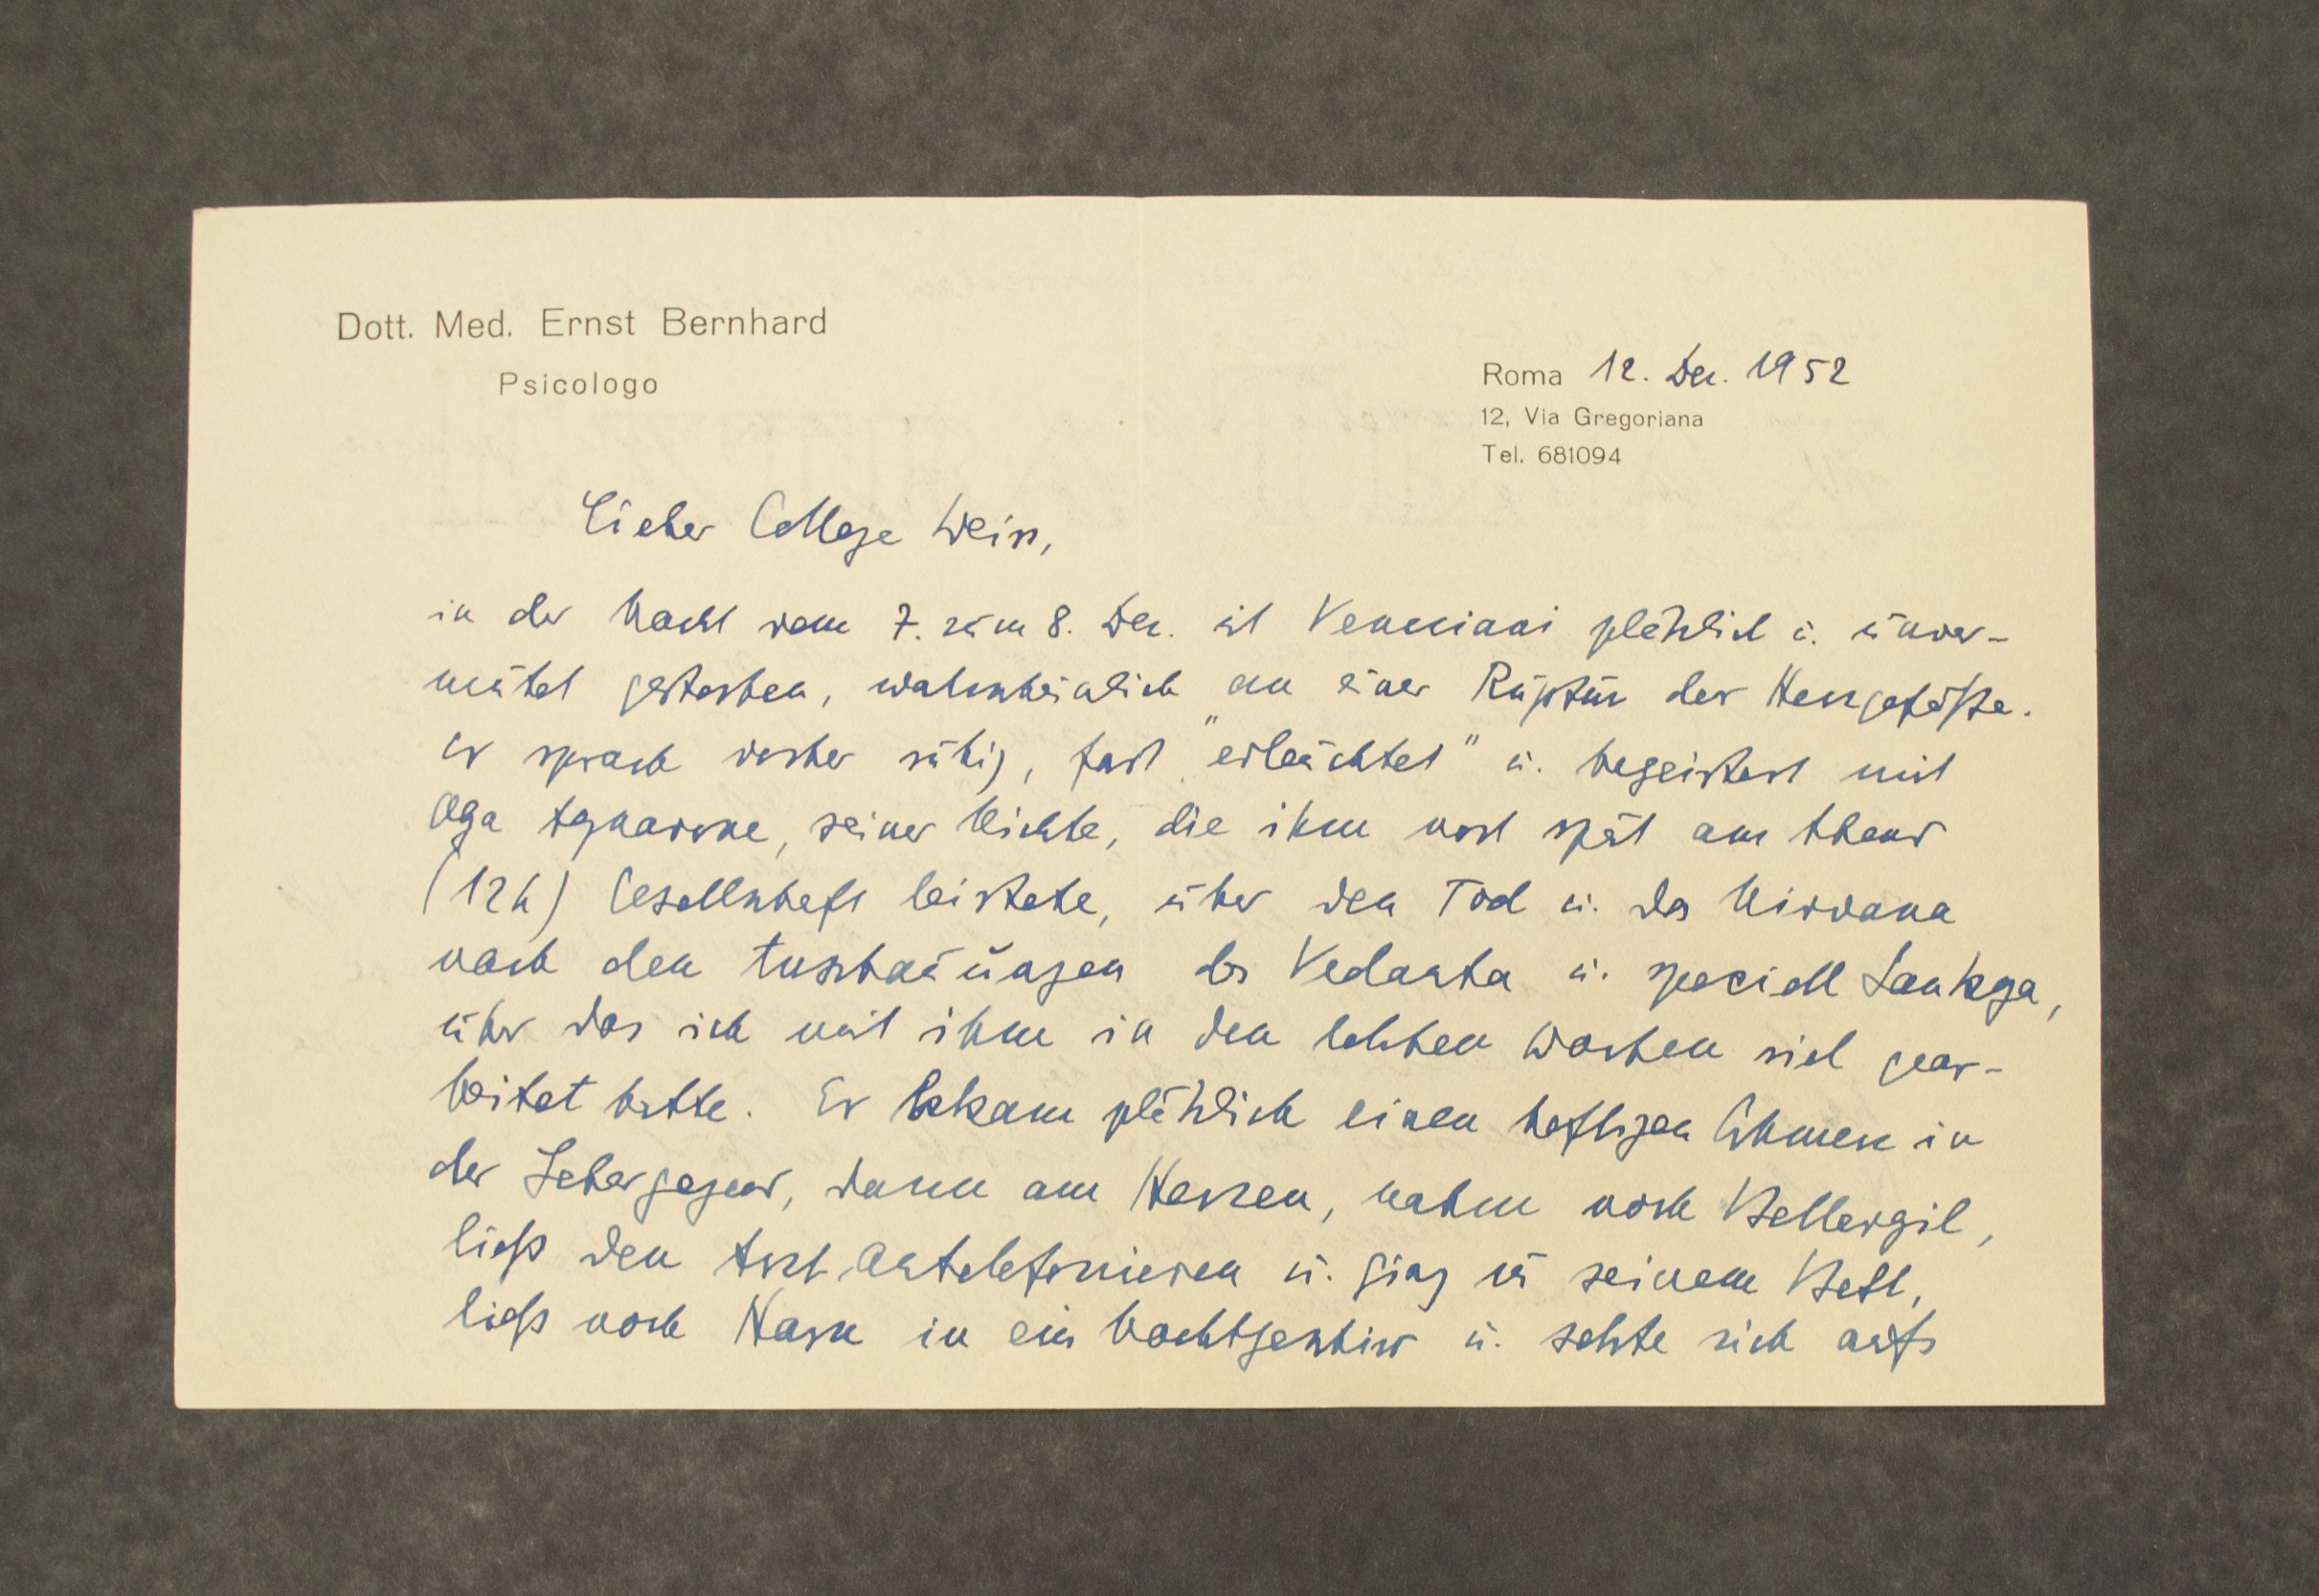 Dott. Med. Ernst Bernhard
Psicologo
Roma 12. Dez. 1952
12, Via Gregoriana
Tel. 681094
Lieber College Weiss,
in der Nacht vom 7. zum 8. Dez. ist Veneziani plötzlich u. unver-
mutet gestorben, wahrscheinlich an einer Ruptur der Herzgefäße.
Er sprach vorher ruhig, fast "erleuchtet" u. begeistert mit
seiner Nichte, die ihm noch spät am Abend
(12h) Gesellschaft leistete, über den Tod u. das Nirvana
nach den Anschauungen des Vedanta u. speciell Sankya,
über das ich mit ihm in den letzten Wochen viel gear-
beitet hatte. Er bekam plötzlich einen heftigen Schmerz in
der Lebergegend, dann am Herzen, nahm noch Bellergil,
ließ den Arzt antelefonieren u. ging zu seinem Bett,
ließ noch Harn in ein Nachtgeschirr u. setzte sich aufs